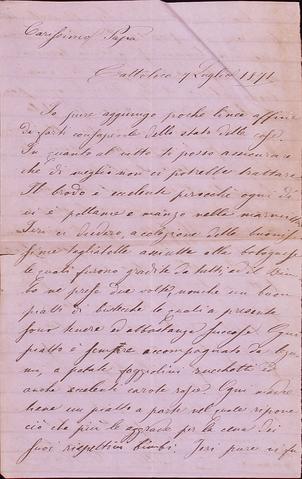 Carissimo Papà
Cattolica 7 Luglio 1871
Io pure aggiungo poche linee affine
di farti consapevole dello stato delle cose.
In quanto al vitto ti posso assicurare
che di meglio non ci potrebbe trattare.
Il brodo è excelente perocché ogni dì
vi è pollame o manzo nella marmitta
Ieri ci diedero, a colezione delle buonis
sime tagliatelle asciutte alla bolognese
le quali furono gradite da tutti, ed il
ne prese due volte, nonché un buon
piatti di bistecche le quali a presente
sono tenere ed abbastanza succose. Ogni
piatto è sempre accompagnato da
o patate faggiolini zucchetti ed
anche excelenti carote rosse. Ogni madre
tiene un piatto a parte nel quale ripone
ciò che più le aggrada per la cena dei
suoi rispettivi bimbi. Ieri pure vi fu